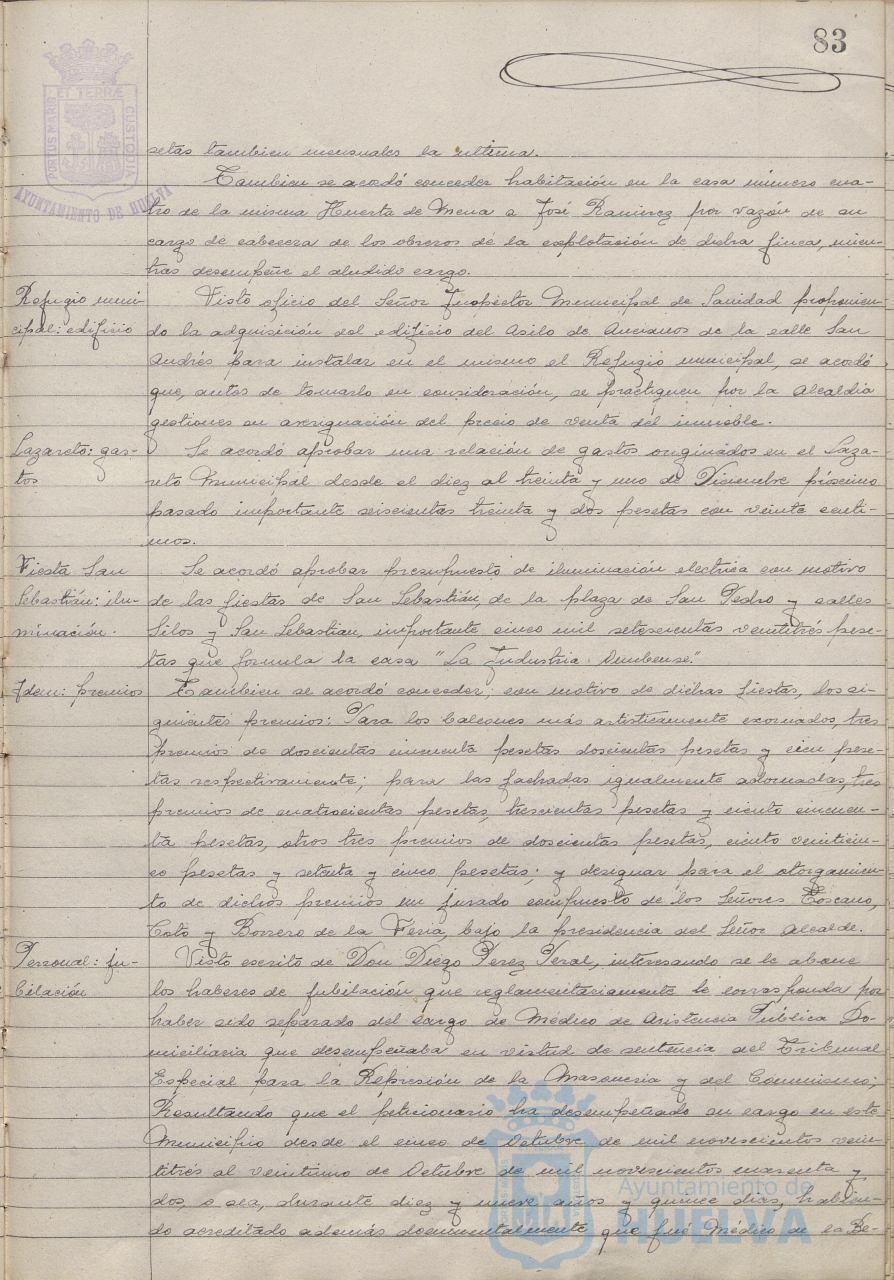 83
PORTUS MARIS ET TERRÆ CUSTODIA
AYUNTAMIENTO DE HUELVA
setas tambien mensuales la ultima.
Tambien se acordó conceder habitación en la casa número cua-
tro de la misma Huerta de Mena a José Ramirez por razón de su
cargo de cabecera de los obreros de la explotación de dicha finca, mien-
tras desempeñe el aludido cargo.
Refugio muni-
cipal: edificio
Visto oficio del Señor Inspector Municipal de Sanidad proponien-
do la adquisición del edificio del Asilo de Ancianos de la calle San
Andrés para instalar en el mismo el Refugio municipal, se acordó
que, antes de tomarlo en consideración, se practiquen por la Alcaldia
gestiones en averiguación del precio de venta del inmueble.
Lazareto: gas-
tos
Se acordó aprobar una relación de gastos originados en el Laza-
reto Municipal desde el diez al treinta y uno de Diciembre próximo
pasado importante seiscientas treinta y dos pesetas con veinte centi-
mos.
Fiesta San
Sebastián: ilu-
minación.
Se acordó aprobar presupuesto de iluminación electrica con motivo
de las fiestas de San Sebastián, de la plaza de San Pedro y calles
Silos y San Sebastian, importante cinco mil setescientas veintitrés pese-
tas que formula la casa "La Industria Onubense."
Idem: premios
Tambien se acordó conceder, con motivo de dichas fiestas, los si-
guientes premios: Para los balcones más artisticamente exornados, tres
premios de doscientas cincuenta pesetas doscientas pesetas y cien pese-
tas respectivamente; para las fachadas igualmente adornadas, tres
premios de cuatrocientas pesetas, trescientas pesetas y ciento cincuen-
ta pesetas, otros tres premios de doscientas pesetas, ciento veinticin-
co pesetas y setenta y cinco pesetas; y designar para el otorgamien-
to de dichos premios un jurado compuesto de los Señores Toscano,
Coto y Borrero de la Feria, bajo la presidencia del Señor Alcalde.
Personal: ju-
bilación
Visto escrito de Don Diego Perez Peral, interesando se le abone
los haberes de jubilación que reglamentariamente le corresponda por
haber sido separado del cargo de Médico de Asistencia Pública Do-
miciliaria que desempeñaba en virtud de sentencia del Tribunal
Especial para la Represión de la Masoneria y del Comunismo;
Resultando que el peticionario ha desempeñado su cargo en este
Municipio desde el cinco de Octubre de mil novescientos vein-
titrés al veintiuno de Octubre de mil novescientos cuarenta y
dos, o sea, durante diez y nueve años y quince dias, habien-
do acreditado además documentalmente que fué Médico de la Be-
Ayuntamiento de
HUELVA